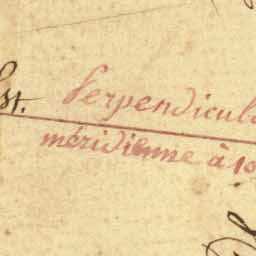 Est. Perpendicul
méridienne à 10